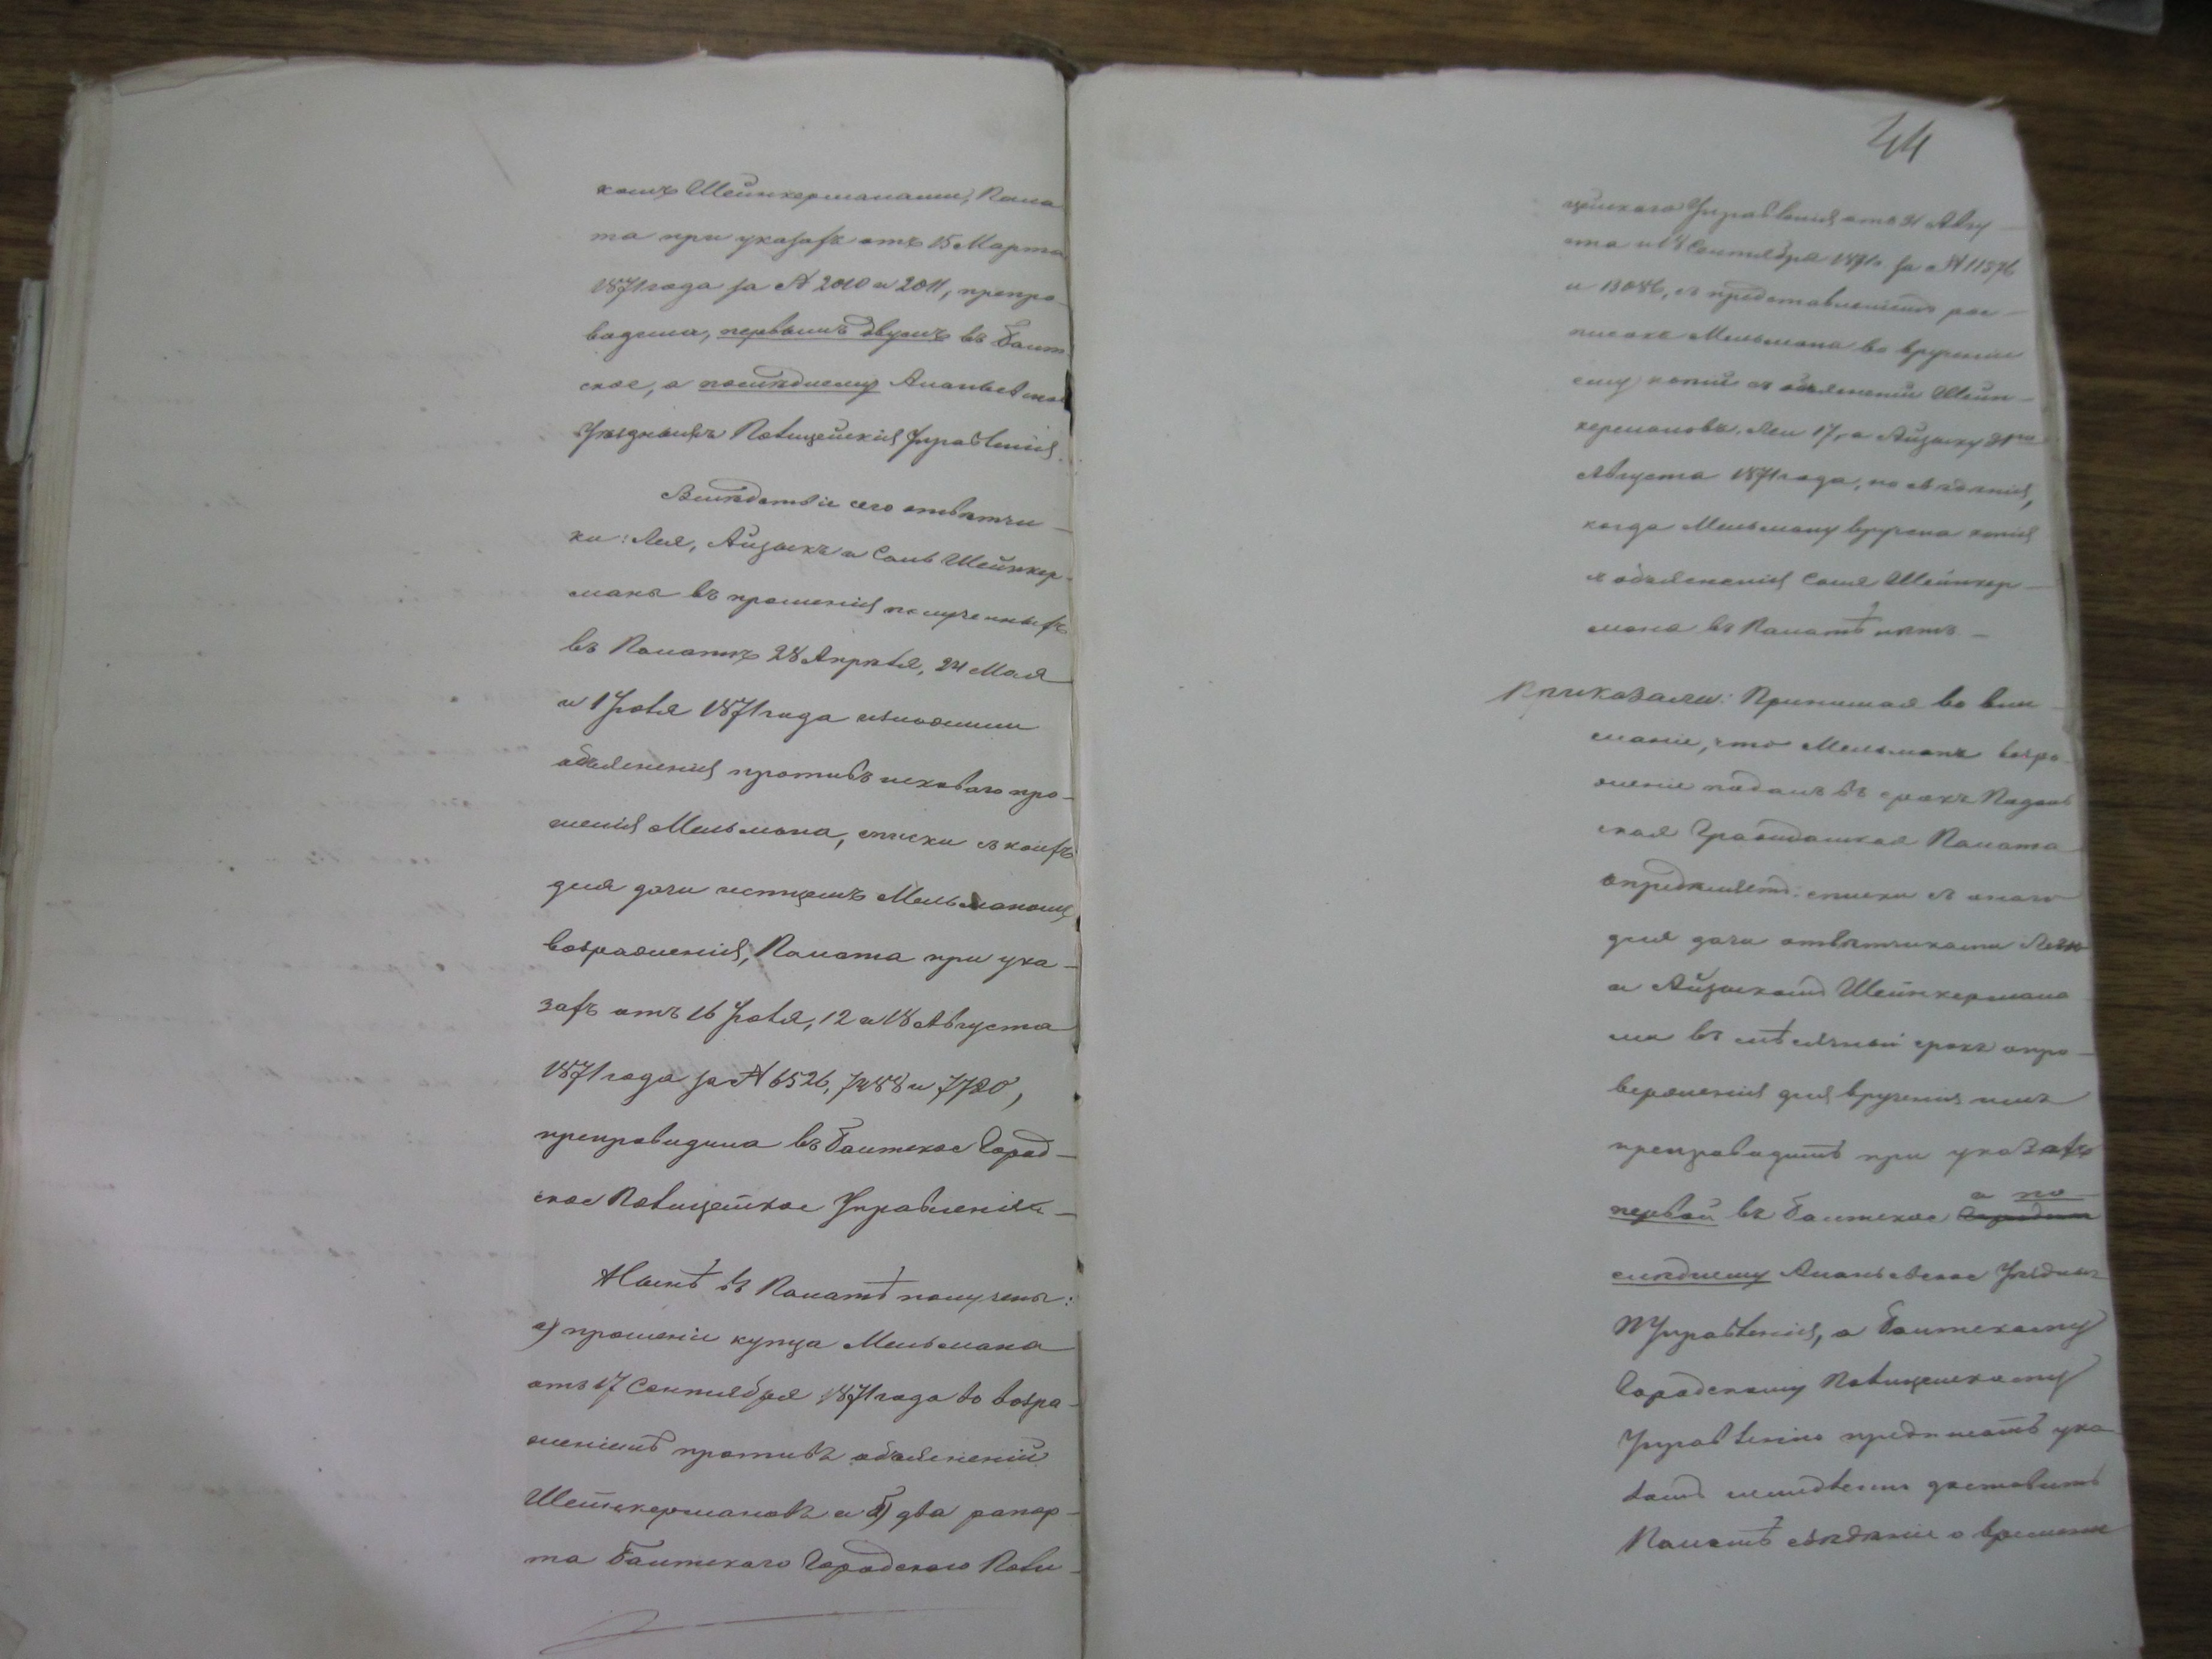 комъ Шейнкерманами, Пала
та при указахъ отъ 15 Марта
1871 года за № 2010 и 2011, препро-
вадила, первымъ двумъ въ Балт
ское, а послѣднему Ананьевское
Уѣздныя Полицейскія Управленія.
Вслѣдствіе сего отвѣтчи-
ки: Лея, Айзыкъ и Сань Шейнкер-
маны въ прошенія полученныхъ
въ Палатѣ 28 Апрѣля, 24 Мая
и 1 Іюля 1871 года изложили
объясненія противъ исковаго про-
шенія Мельмана, списки съ коихъ
для дачи истцемъ Мельманомъ
возраженія, Палата при ука-
захъ отъ 16 Іюля, 12 и 18 Августа
1871 года за № 6526, 7488 и 7720,
препровадила въ Балтское Город-
ское Полицейское Управленіе.-
Нынѣ въ Палатѣ получены:
а) прошеніе купца Мельмана
отъ 17 Сентября 1871 года во возра-
женіемъ противъ объясненій
Шейнкермановъ и б) два рапор-
та Балтскаго Городскаго Поли-
44
цейскаго Управленія отъ 31 Авгу-
ста и 18 Сентября 1871г. за № 11576
и 13086, съ представленіемъ рос-
писокъ Мельмана во врученіи
ему копій съ объясненій Шейн-
кермановъ, Леи 17, а Айзыку 31го
Августа 1871 года, но свѣдѣнія,
когда Мельману вручена копія
съ объясненія Саня Шейнкер-
мана въ Палатѣ нѣтъ.-
Приказали: Принимая во вни-
маніе, что Мельманъ возра-
женіе подалъ въ срокъ Подоль
ская Гражданская Палата
опредѣляетъ: списки съ онаго
для дачи отвѣтчиками Леею
и Айзыкомъ Шейнкермана
ми въ мѣсячный срокъ опро-
верженія для врученія имъ
препроводить при указахъ
а по
первой въ Балтское
слѣднему Ананьевское Уѣздныя
П Управленія, а Балтскому
Городскому Полицейскому
Управленію предписать ука
зомъ немедленно доставить
Палатѣ свѣдѣніе о времени